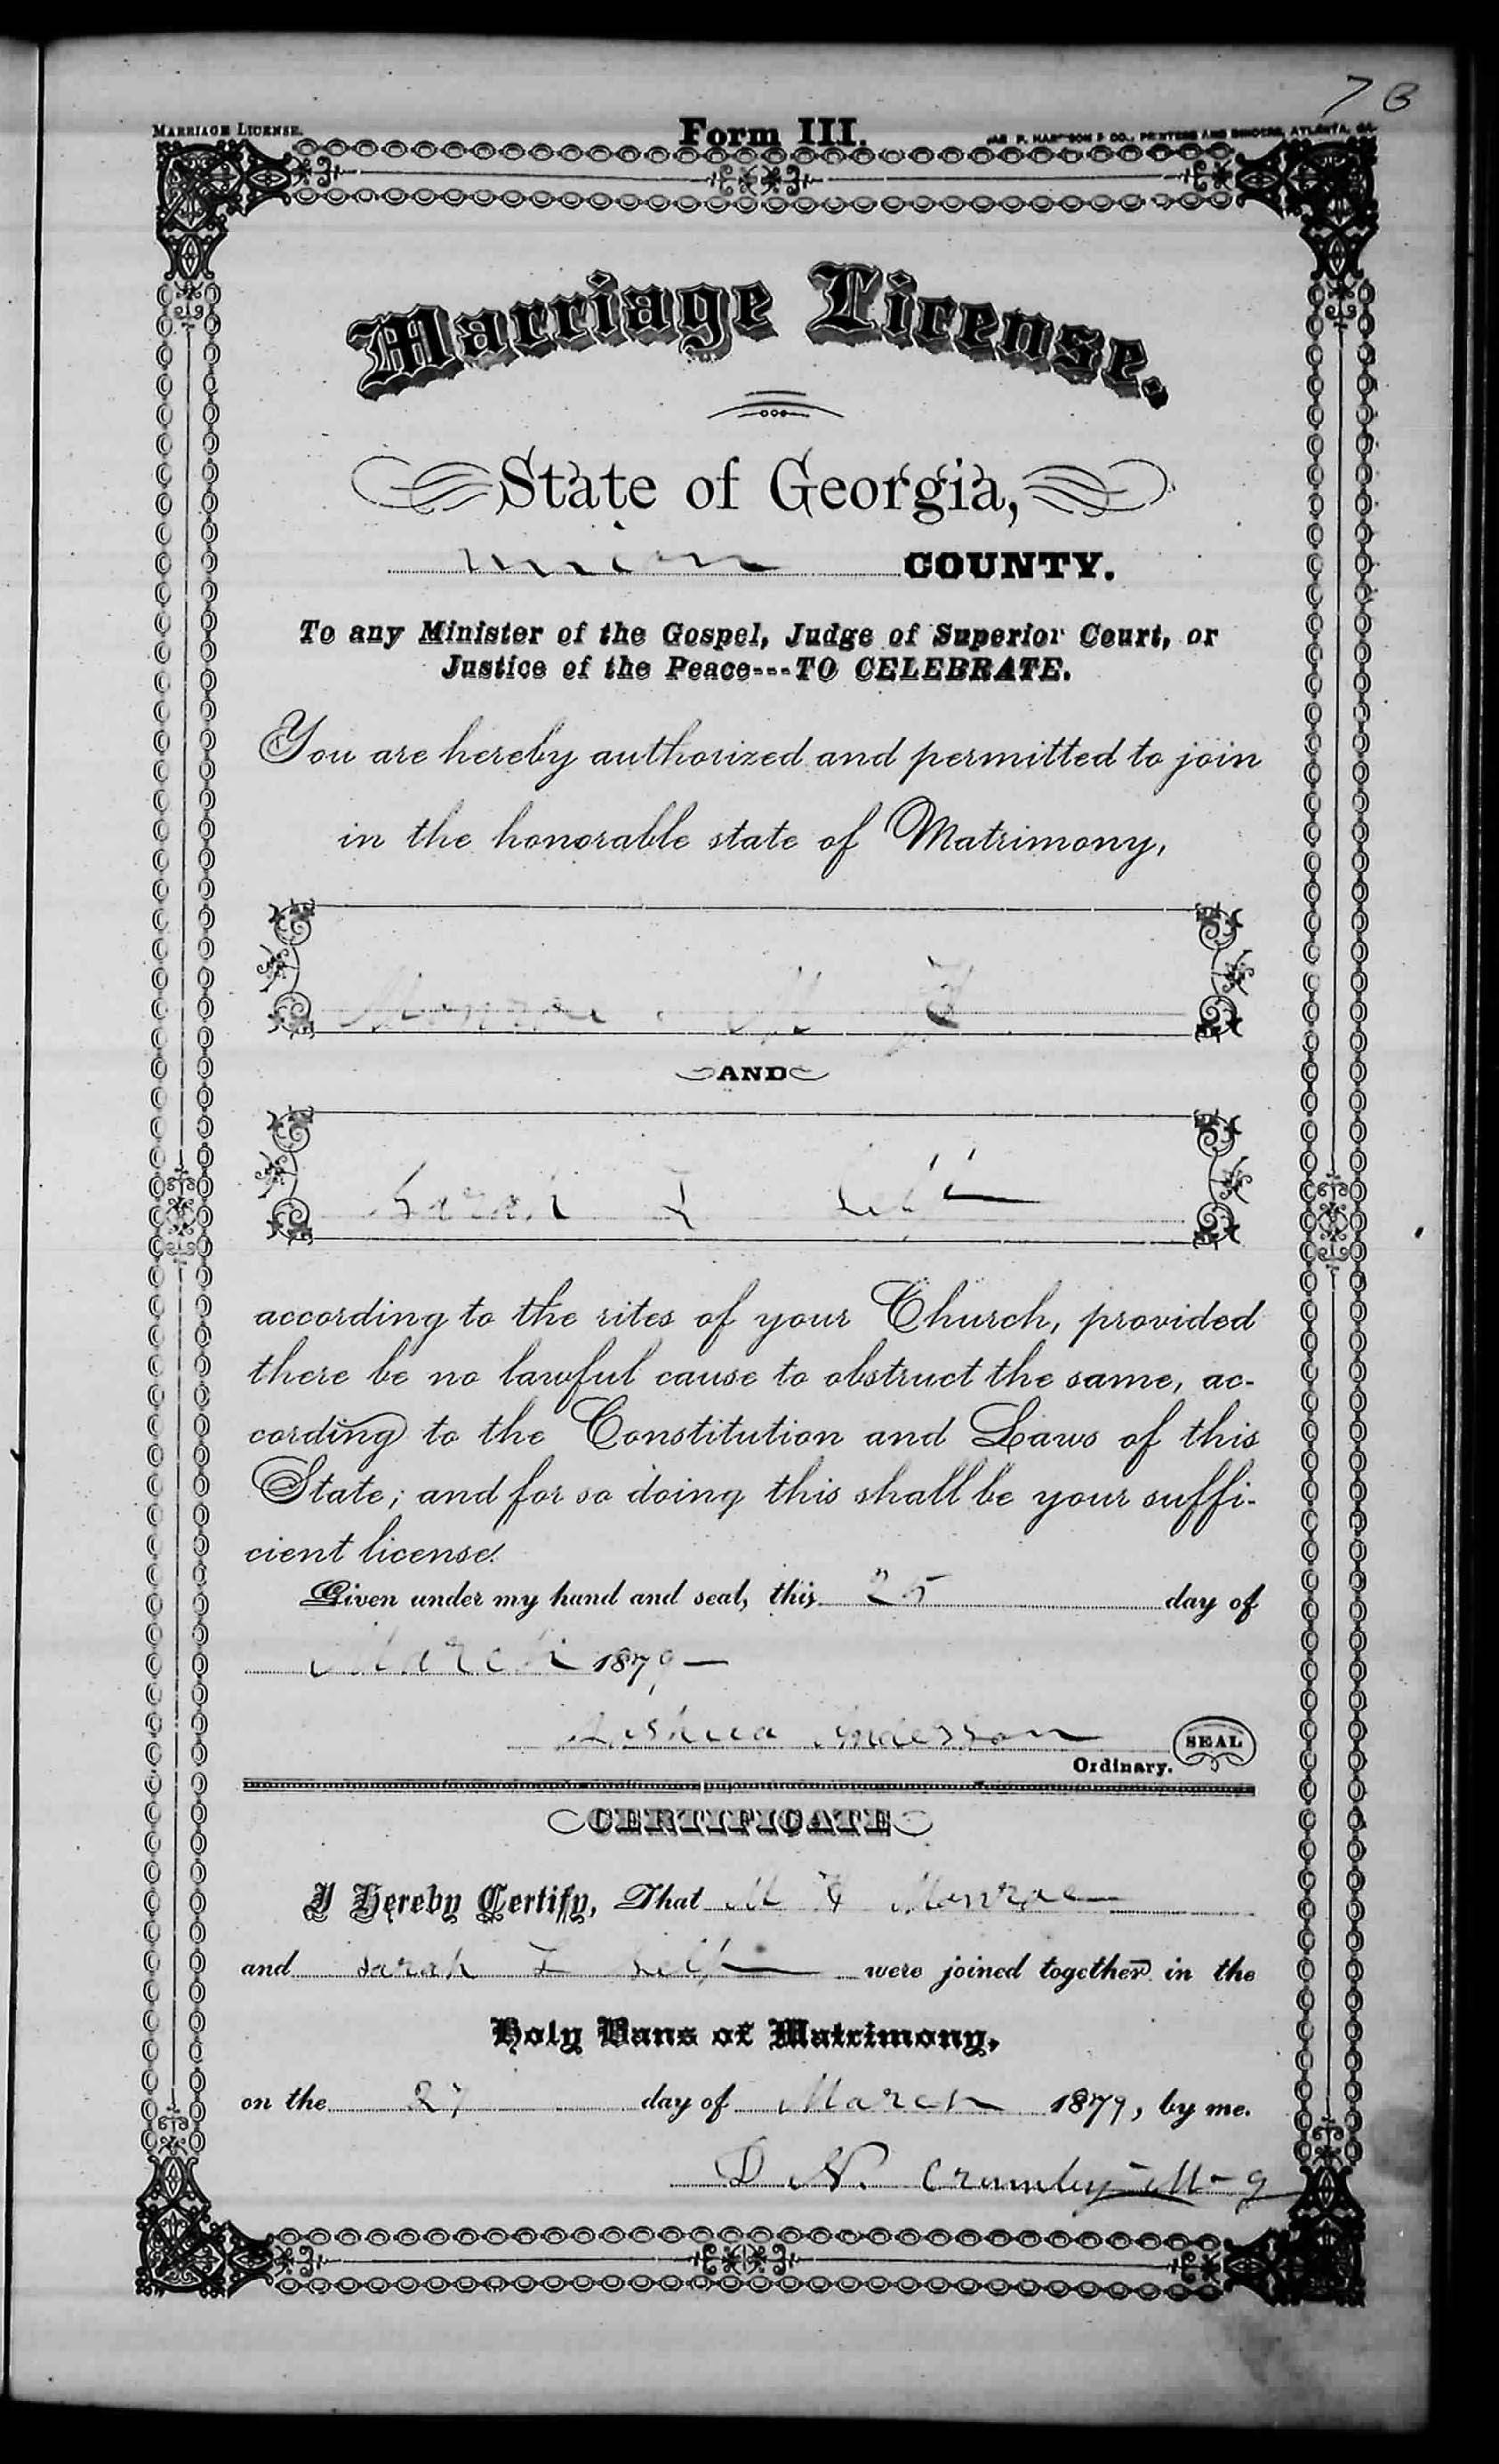 7 B
MARRIAGE LICENSE.
Form III.
JAS P. HARRISON & CO., PRINTERS AND BINDERS, ATLANTA, GA.
Marriage License.
State of Georgia,
Union COUNTY.
To any Minister of the Gospel, Judge of Superior Court, or
Justice of the Peace---TO CELEBRATE.
You are hereby authorized and permitted to join
in the honorable state of Matrimony,
Monroe M F
AND
Sarah L
according to the rites of your Church, provided
there be no lawful cause to obstruct the same, ac-
cording to the Constitution and Laws of this
State; and for so doing this shall be your suffi-
cient license.
Given under my hand and seal, this 25 day of
March 1879
Anderson SEAL
Ordinary.
CERTIFICATE
I Hereby Certify, That M F Monroe
and Sarah L were joined together in the
Holy Bans of Matrimony,
on the 27 day of March 1879, by me.
D N. Crumley M-g